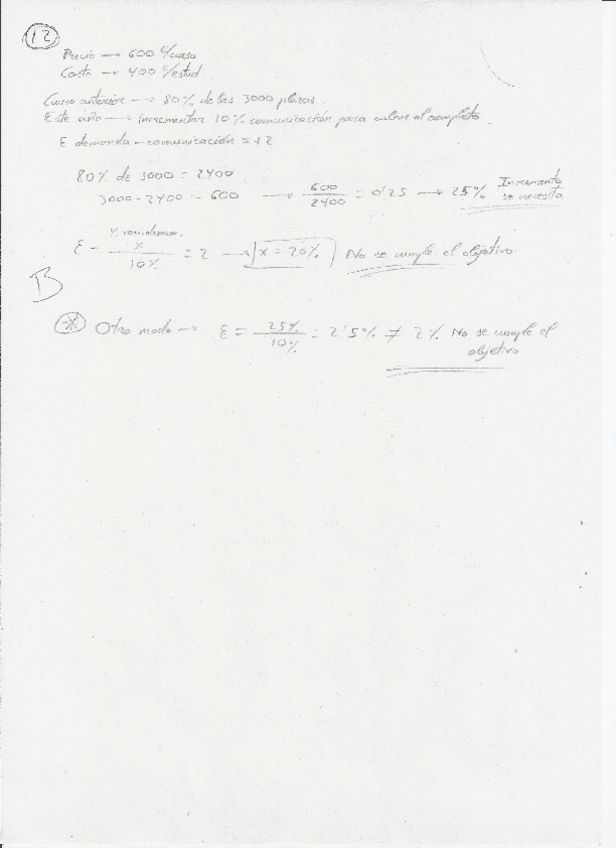 12
Precio → 600 €/curso
Coste → 400 €/estud
Curso anterior → 80% de las 3000 plazas.
Este año → Incrementar 10% comunicación para cubrir al completo.
E demanda - comunicación = +2
80% de 3000 = 2400
3000 - 2400 = 600 → 600/2400 = 0'25 → 25% Incremento se necesita
E = x/10% = 2 → x = 20% No se cumple el objetivo
B
* Otro modo → E = 25%/10% = 2'5% ≠ 2% No se cumple el
objetivo